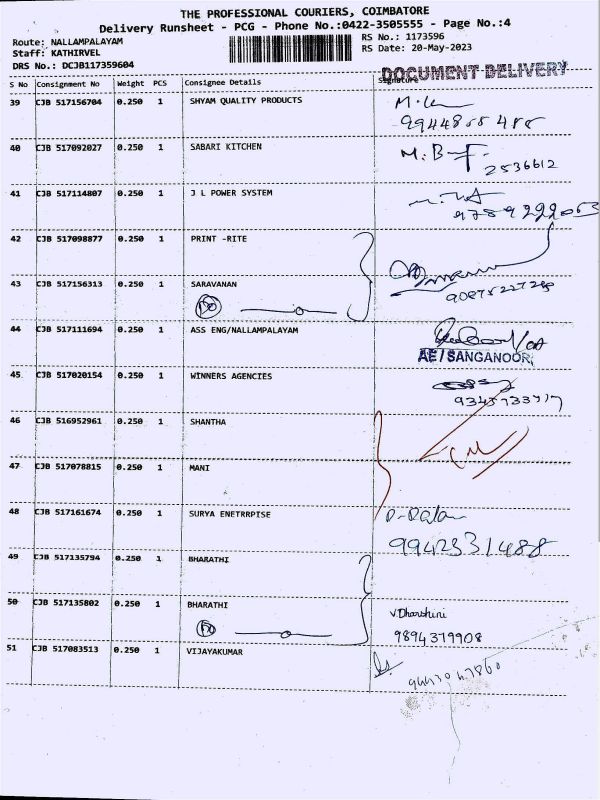 THE PROFESSIONAL COURIERS, COIMBATORE
Delivery Runsheet - PCG - Phone No.:0422-3505555 - Page No.:4
Route: NALLAMPALAYAM RS No.: 1173596
Staff: KATHIRVEL RS Date: 20-May-2023
DRS No.: DCJB117359604 DOCUMENT DELIVERY
S No Consignment No Weight PCS Consignee Details Signature
39 CJB 517156704 0.250 1 SHYAM QUALITY PRODUCTS
40 CJB 517092027 0.250 1 SABARI KITCHEN
2536612
41 CJB 517114807 0.250 1 J L POWER SYSTEM
9789222053
42 CJB 517098877 0.250 1 PRINT -RITE
43 CJB 517156313 0.250 1 SARAVANAN
44 CJB 517111694 0.250 1 ASS ENG/NALLAMPALAYAM
AE/SANGANOOR,
45 CJB 517020154 0.250 1 WINNERS AGENCIES
46 CJB 516952961 0.250 1 SHANTHA
47 CJB 517078815 0.250 1 MANI
48 CJB 517161674 0.250 1 SURYA ENETRRPISE
9942331488
49 CJB 517135794 0.250 1 BHARATHI
50 CJB 517135802 0.250 1 BHARATHI V.Dharshini
9894379908
51 CJB 517083513 0.250 1 VIJAYAKUMAR